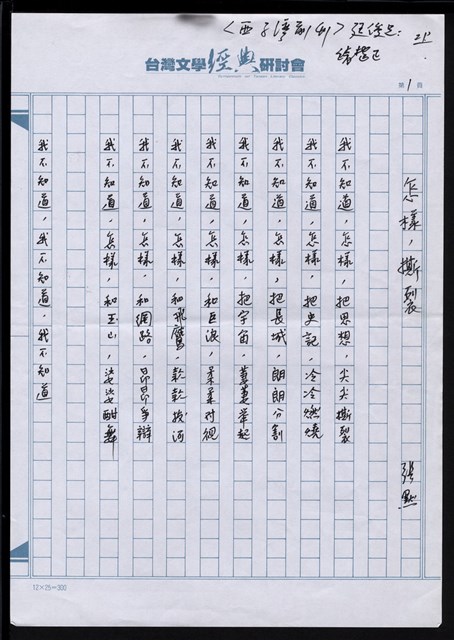 台灣文學經典研討會
第1頁
怎樣,撕裂
張默
我不知道,怎樣,把思想,尖尖撕裂
我不知道,怎樣,把史記,冷冷燃燒
我不知道,怎樣,把長城,朗朗分割
我不知道,怎樣,把宇宙,萋萋舉起
我不知道,怎樣,和巨浪,柔柔對視
我不知道,怎樣,和飛鷹,乾乾拔河
我不知道,怎樣,和網路,昂昂爭辯
我不知道,怎樣,和玉山,姿姿酣舞
我不知道,我不知道,我不知道
12×25=300